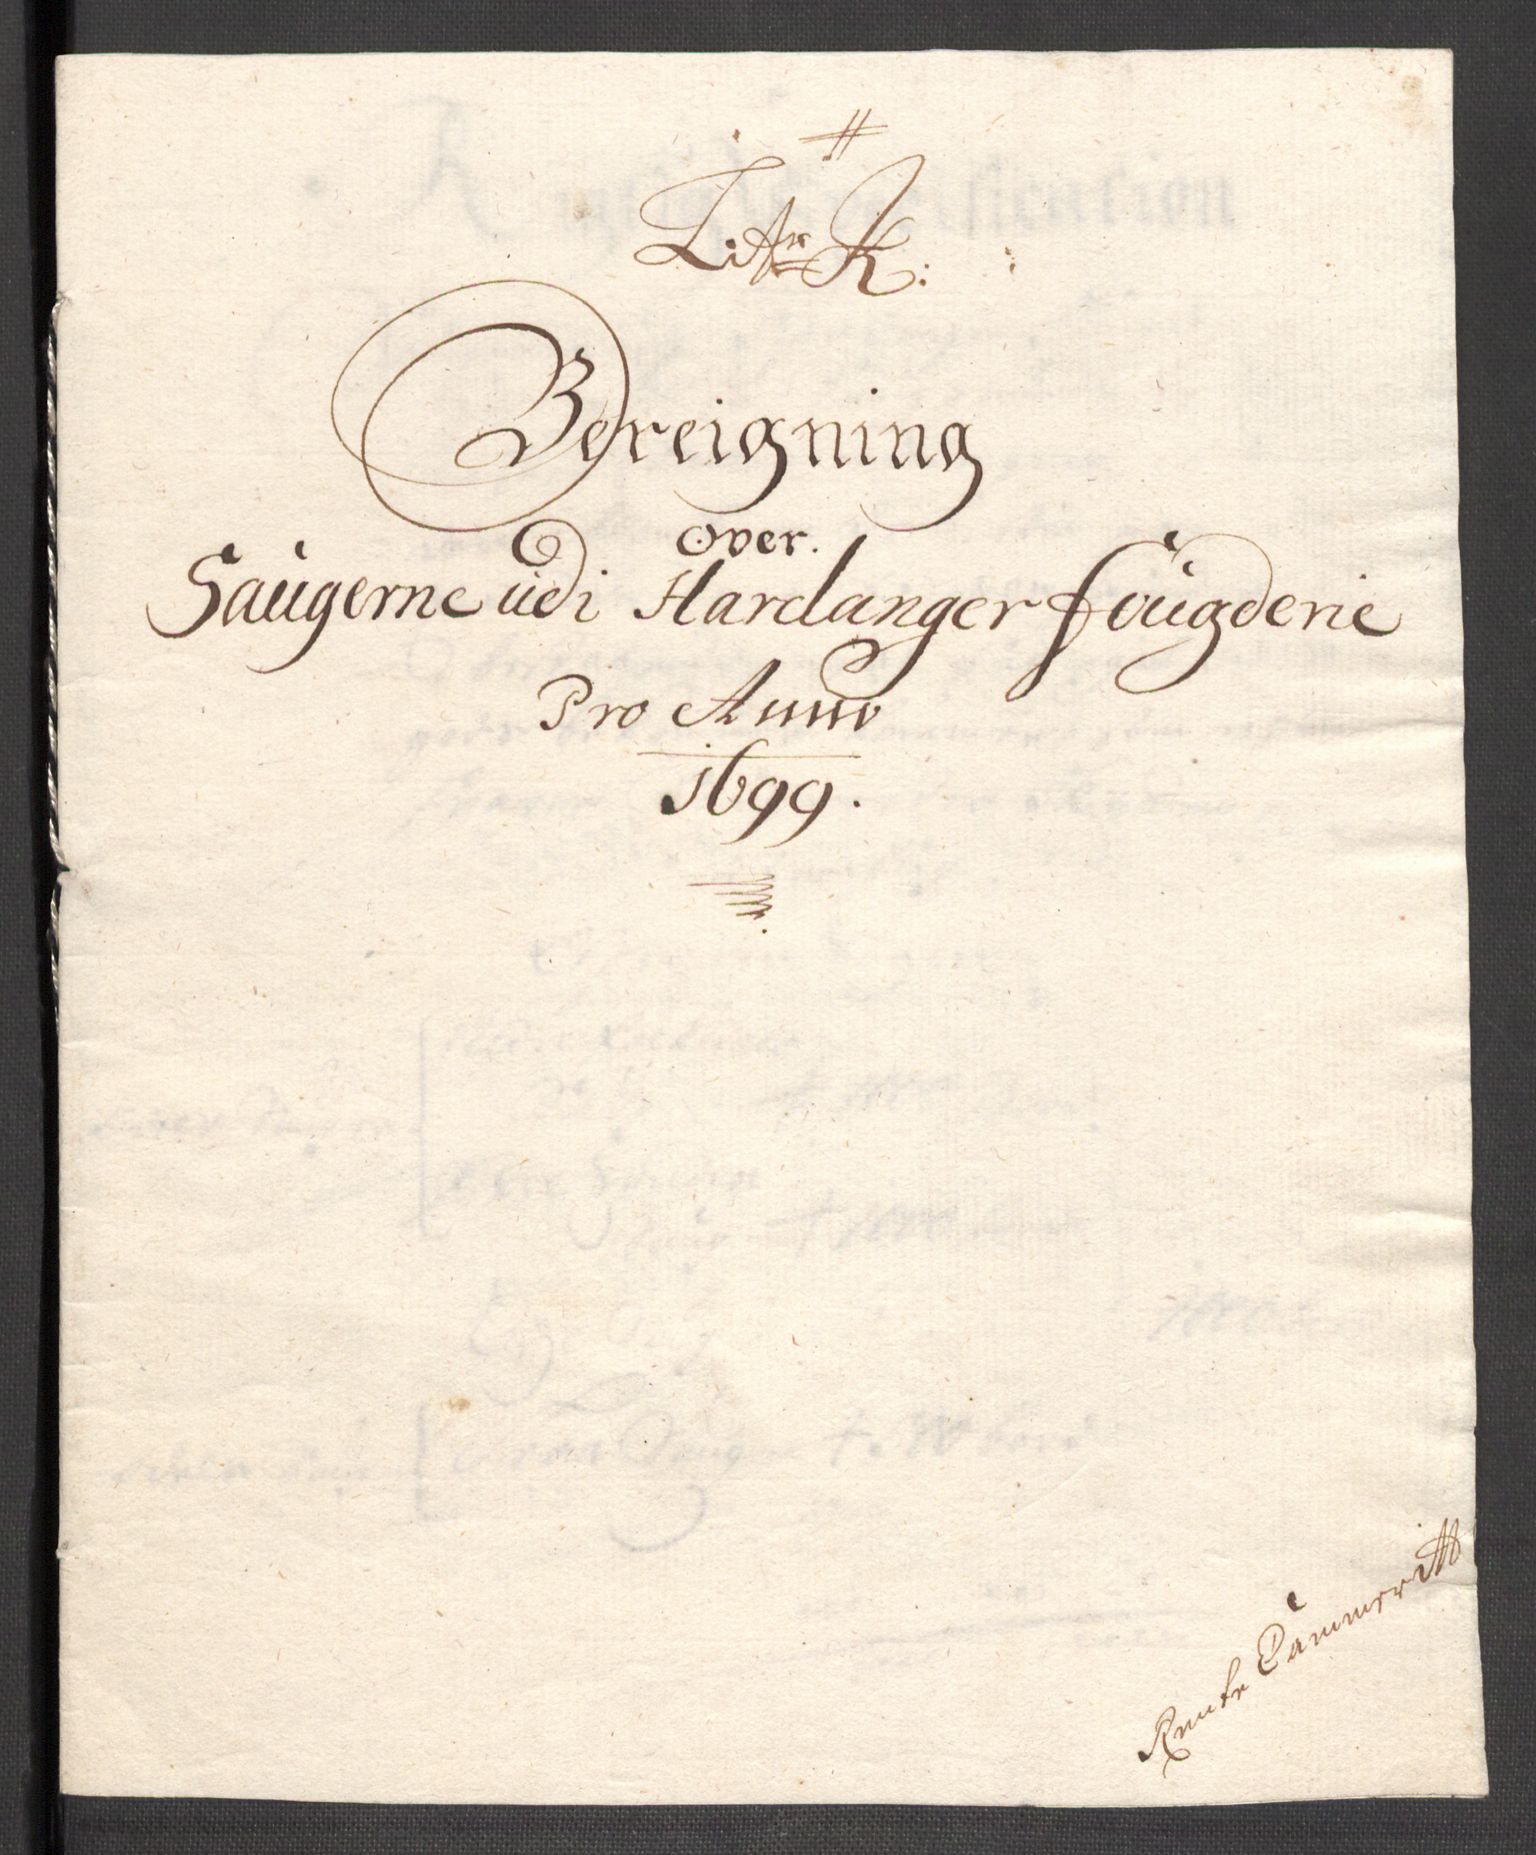 #
Litr K:
Bereigning
over.
Saugerne udi Hardanger fougderie
Pro Anno
1699.
Rente Cammeritt